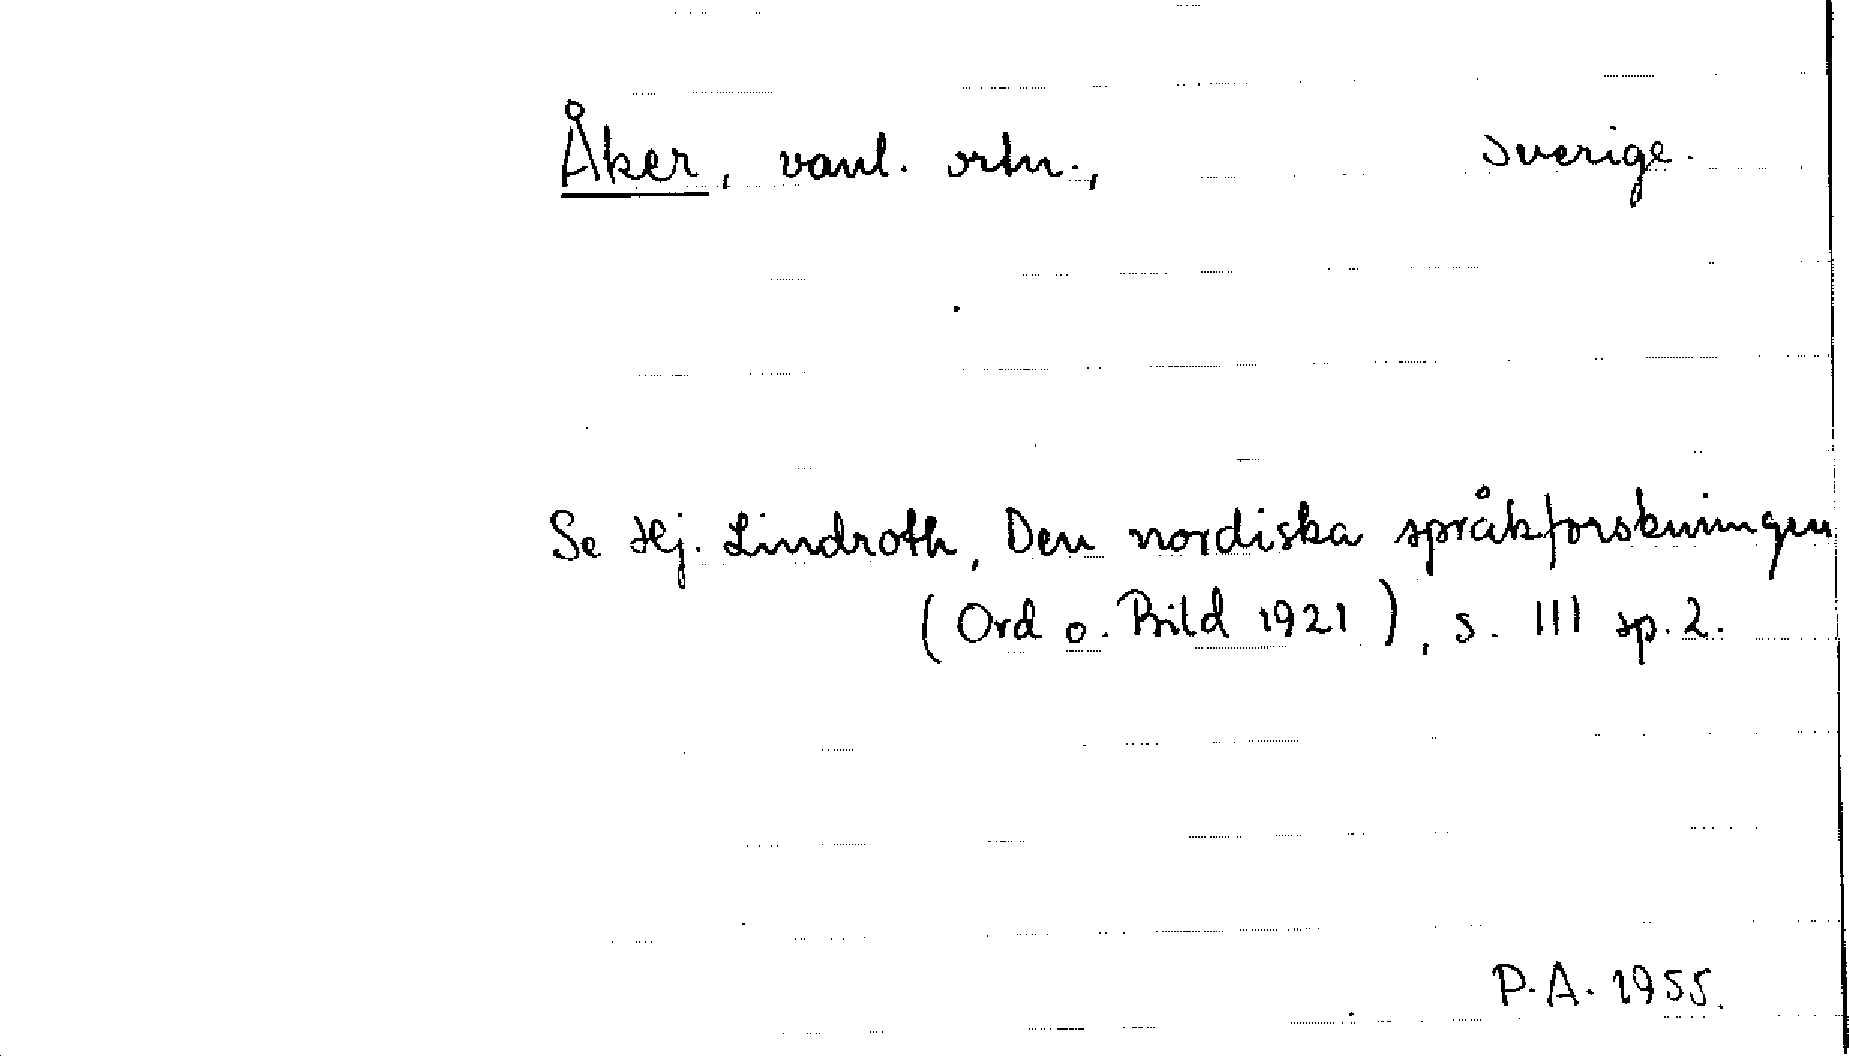 Åker, vanl. ortn., Sverige.
Se Hj. Lindroth, Den nordiska språkforskningen
(Ord o. Bild 1921), s. 111 sp. 2.
P.A. 1955.